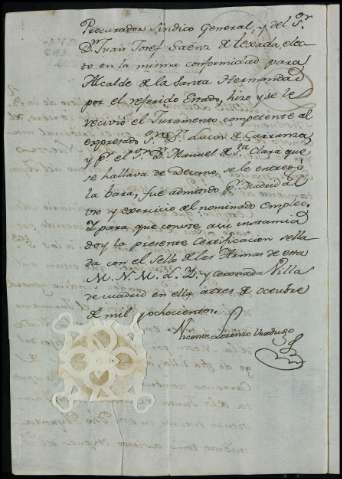 Procurador Sindico General, y del Sr.
Dn. Juan Josef Saenz de Texada, elec-
to en la misma conformidad para
Alcalde de la Santa Hermandad
por el referido Estado, hizo y se le
recivió el Juramento competente al
expresado Sr. Dn. Lucas de Carranza
y pr. el Sr. Dn. Manuel de Sta. Clara que
se hallava de Decano, se le entregó
la bara, fue admitido pr. Madrid al
uso y exercicio al nominado empleo.
Y para que conste, doy
la presente Certificacion sella-
da con el Sello de las Armas de esta
M. N. M. L. I. y Coronada Villa
de Madrid en ella a tres de octubre
de mil y ochocientos
Vicente Lorenzo Verdugo